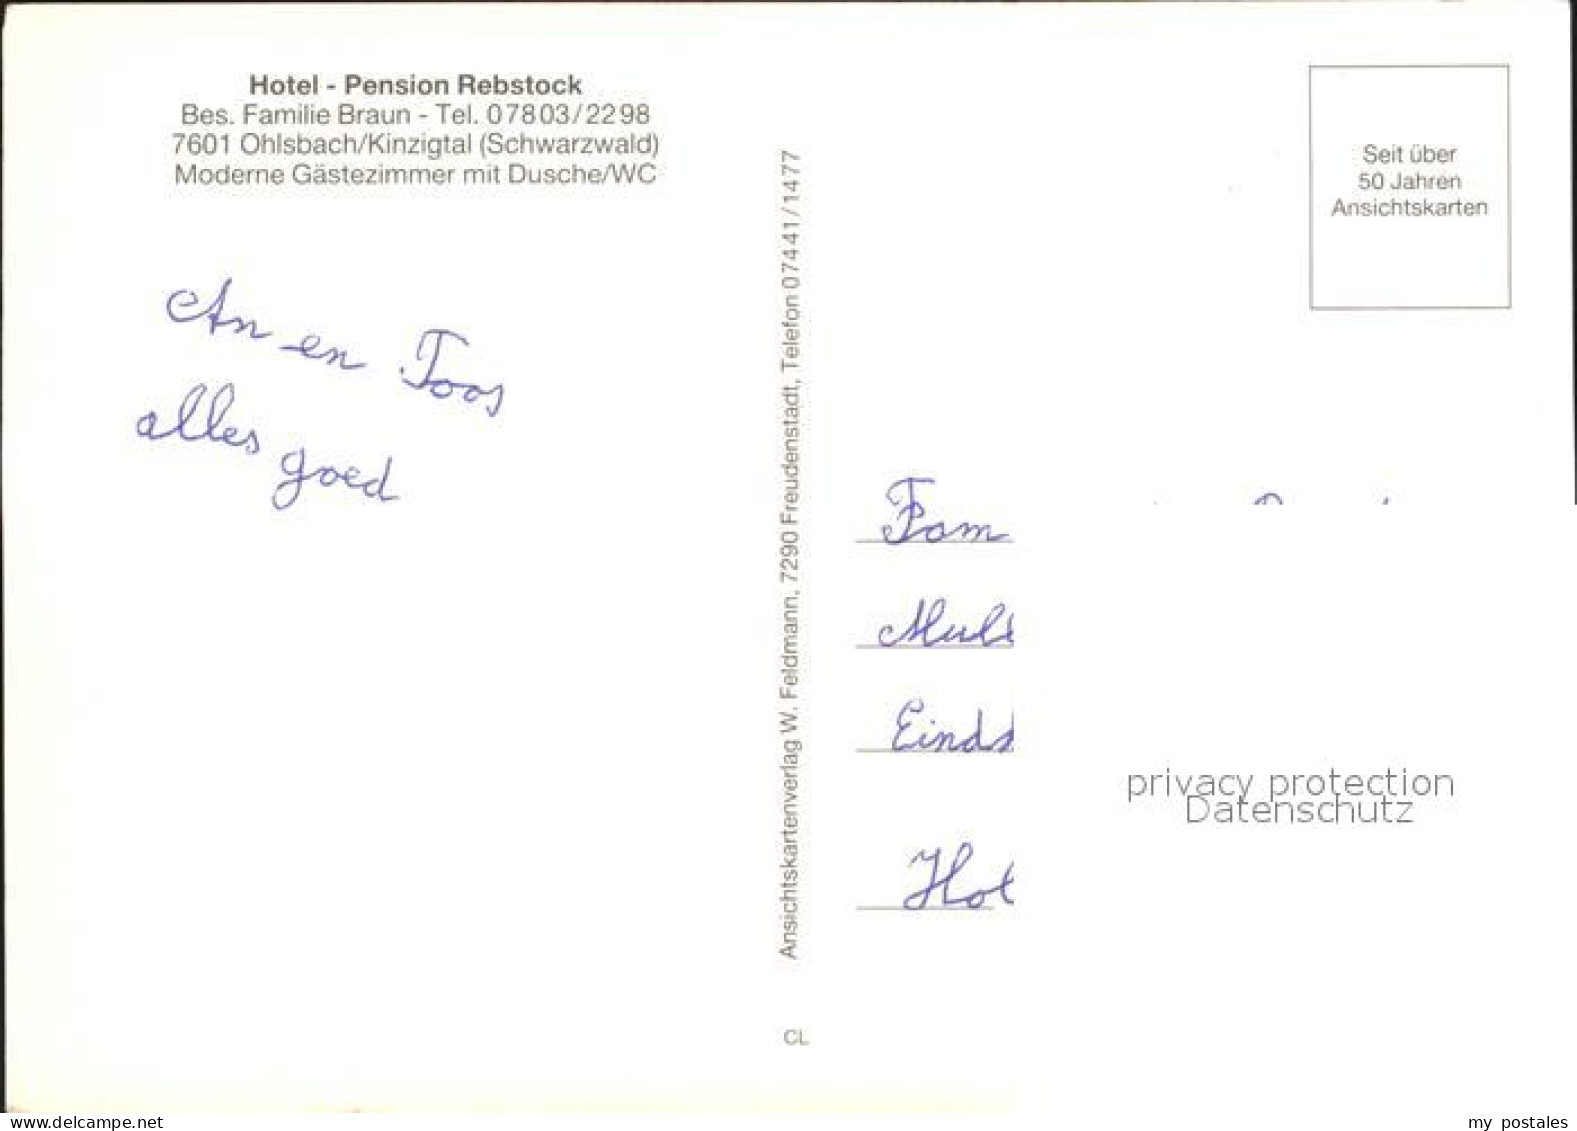 Hotel - Pension Rebstock
Bes. Familie Braun - Tel. 07803/2298
7601 Ohlsbach/Kinzigtal (Schwarzwald)
Moderne Gästezimmer mit Dusche/WC
An en Toos
alles goed
Ansichtskartenverlag W. Feldmann, 7290 Freudenstadt, Telefon 07441/1477
CL
Seit über
50 Jahren
Ansichtskarten
Fam
privacy protection
Datenschutz
www.delcampe.net
my postales